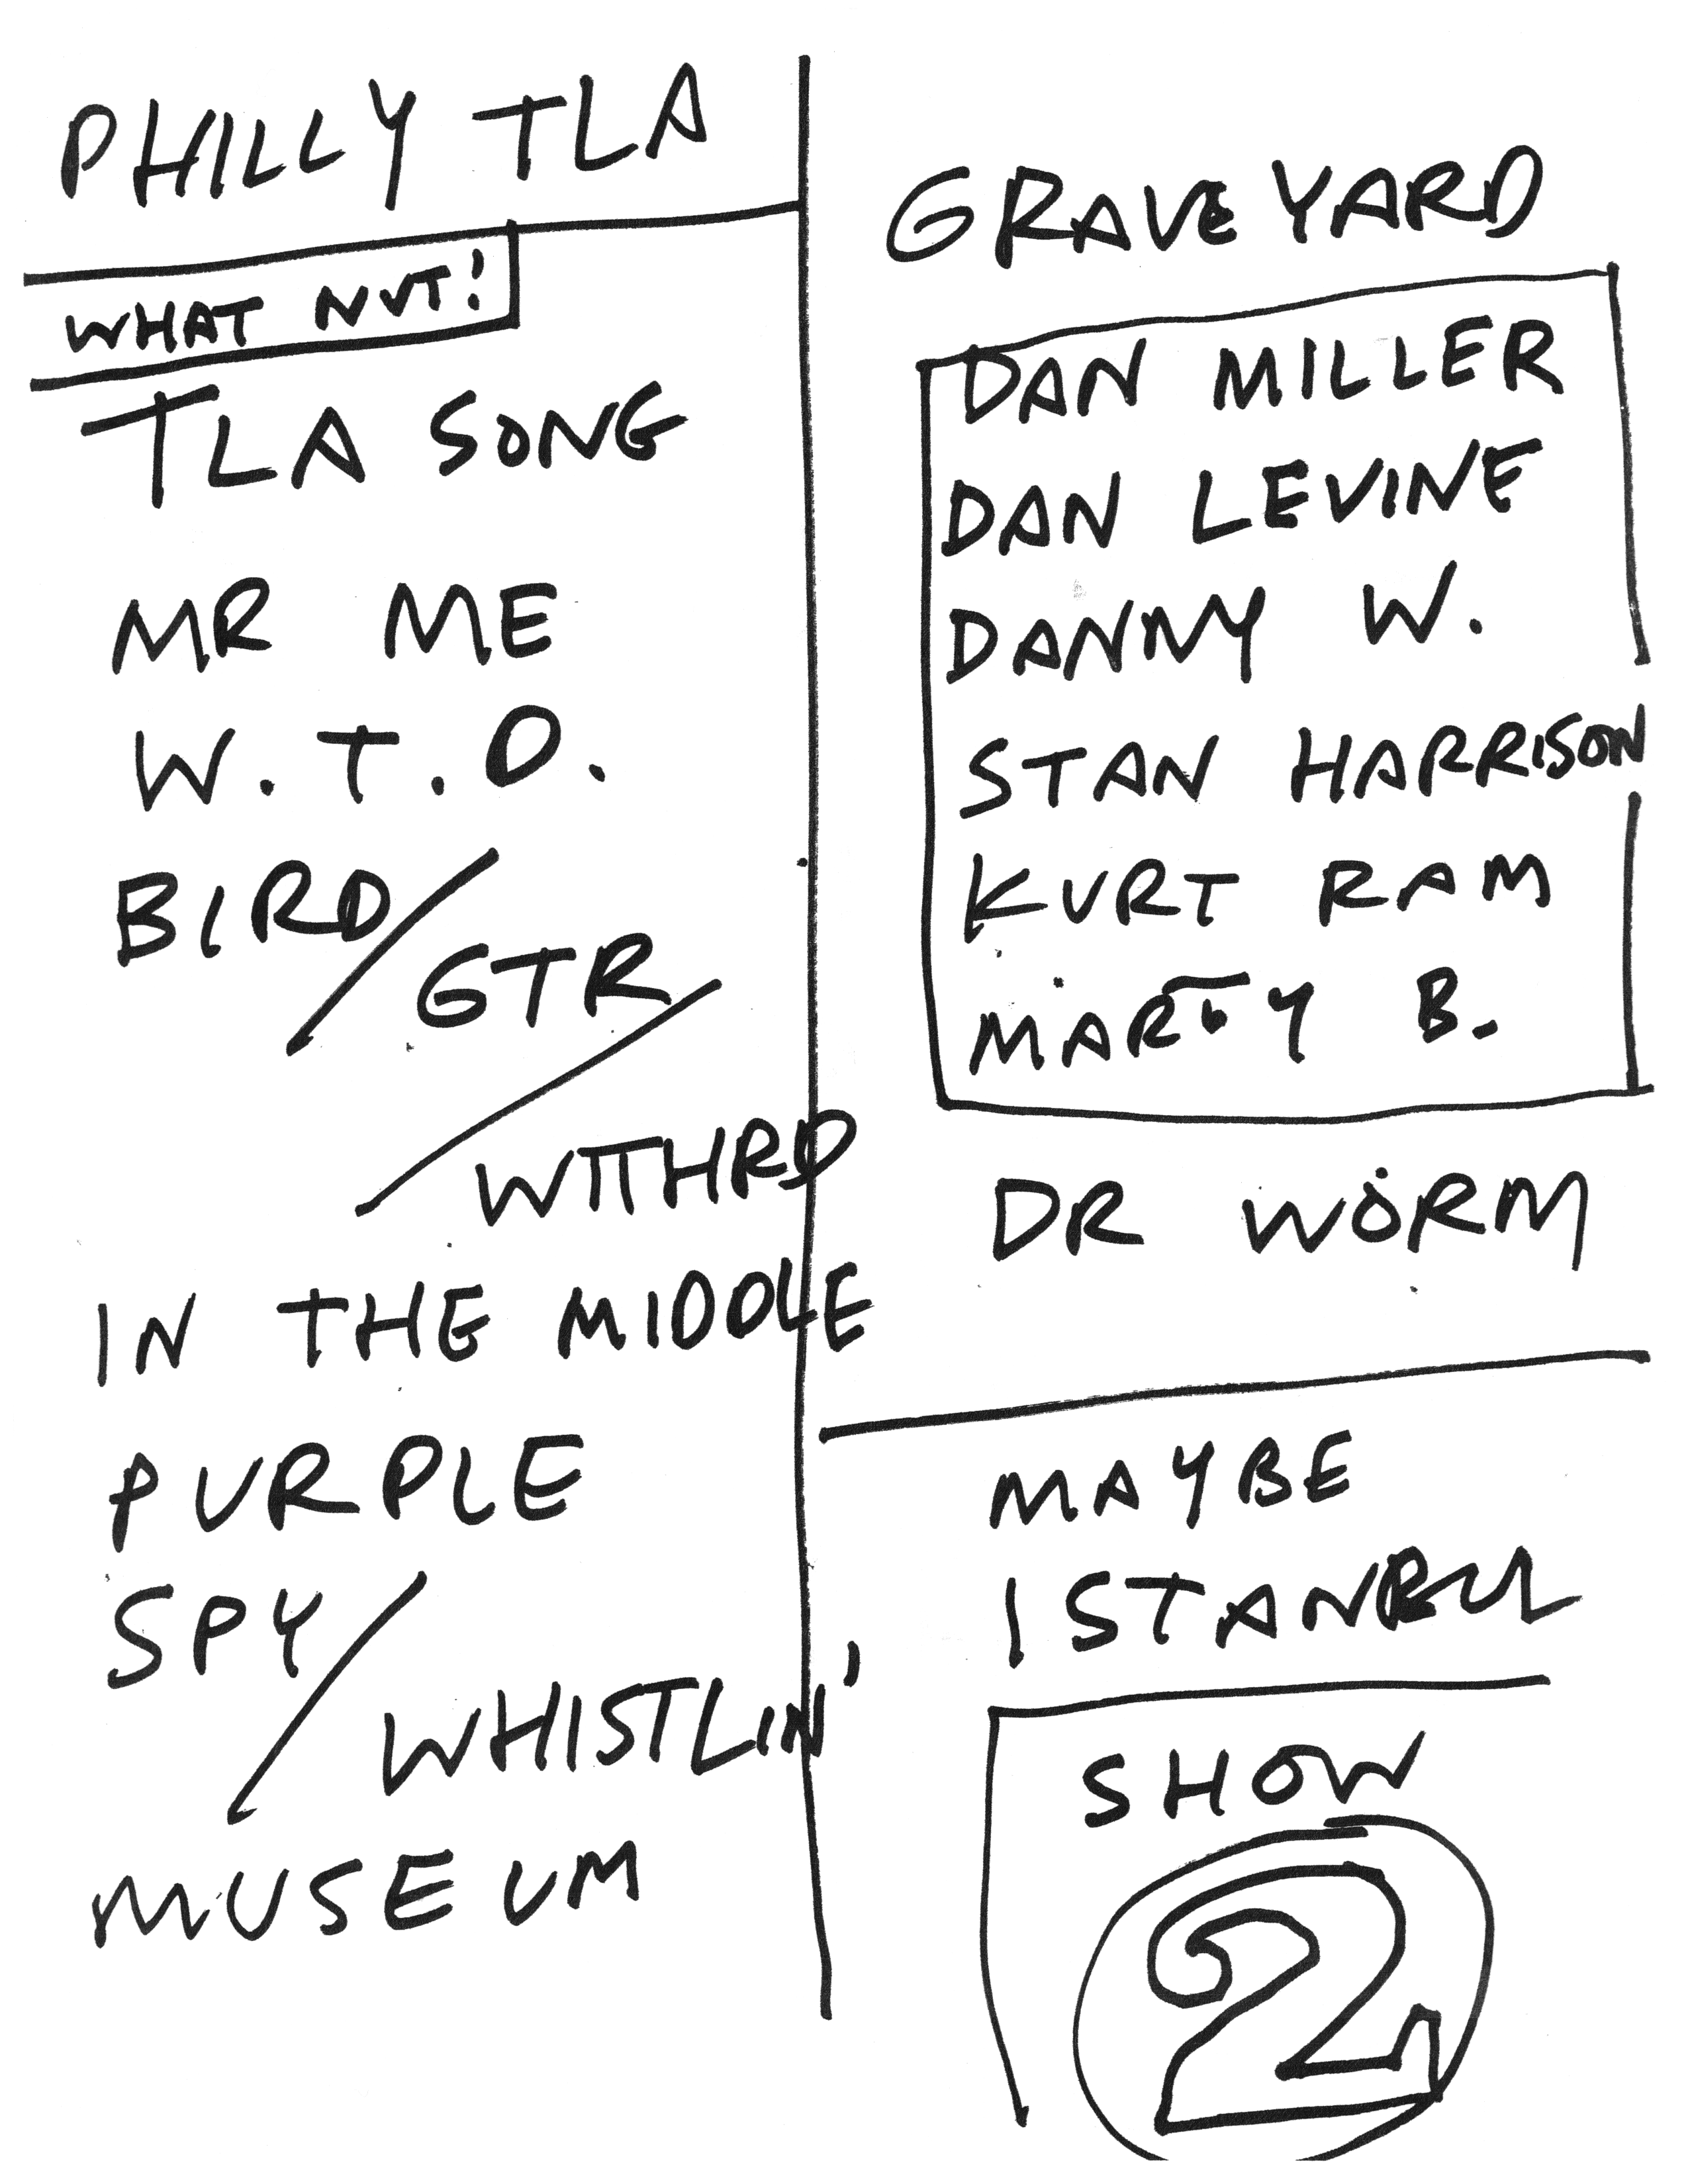 PHILLY TLA
WHAT NUT!
TLA SONG
MR ME
W. T. O.
BIRD/
GTR/
WTTHRD
IN THE MIDDLE
PURPLE
SPY/
WHISTLIN'
MUSEUM
GRAVEYARD
DAN MILLER
DAN LEVINE
DANNY W.
STAN HARRISON
KURT RAM
MARTY B.
DR WÖRM
MAYBE
ISTANBUL
SHOW
2